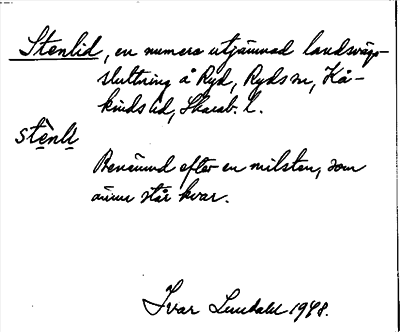 Stenlid, en numera utjämnad landsvägs-
sluttning å Ryd, Ryds sn, Kå-
kinds hd, Skarab. l.
stènli
Benämnd efter en milsten, som
ännu står kvar.
Ivar Lundahl 1948.